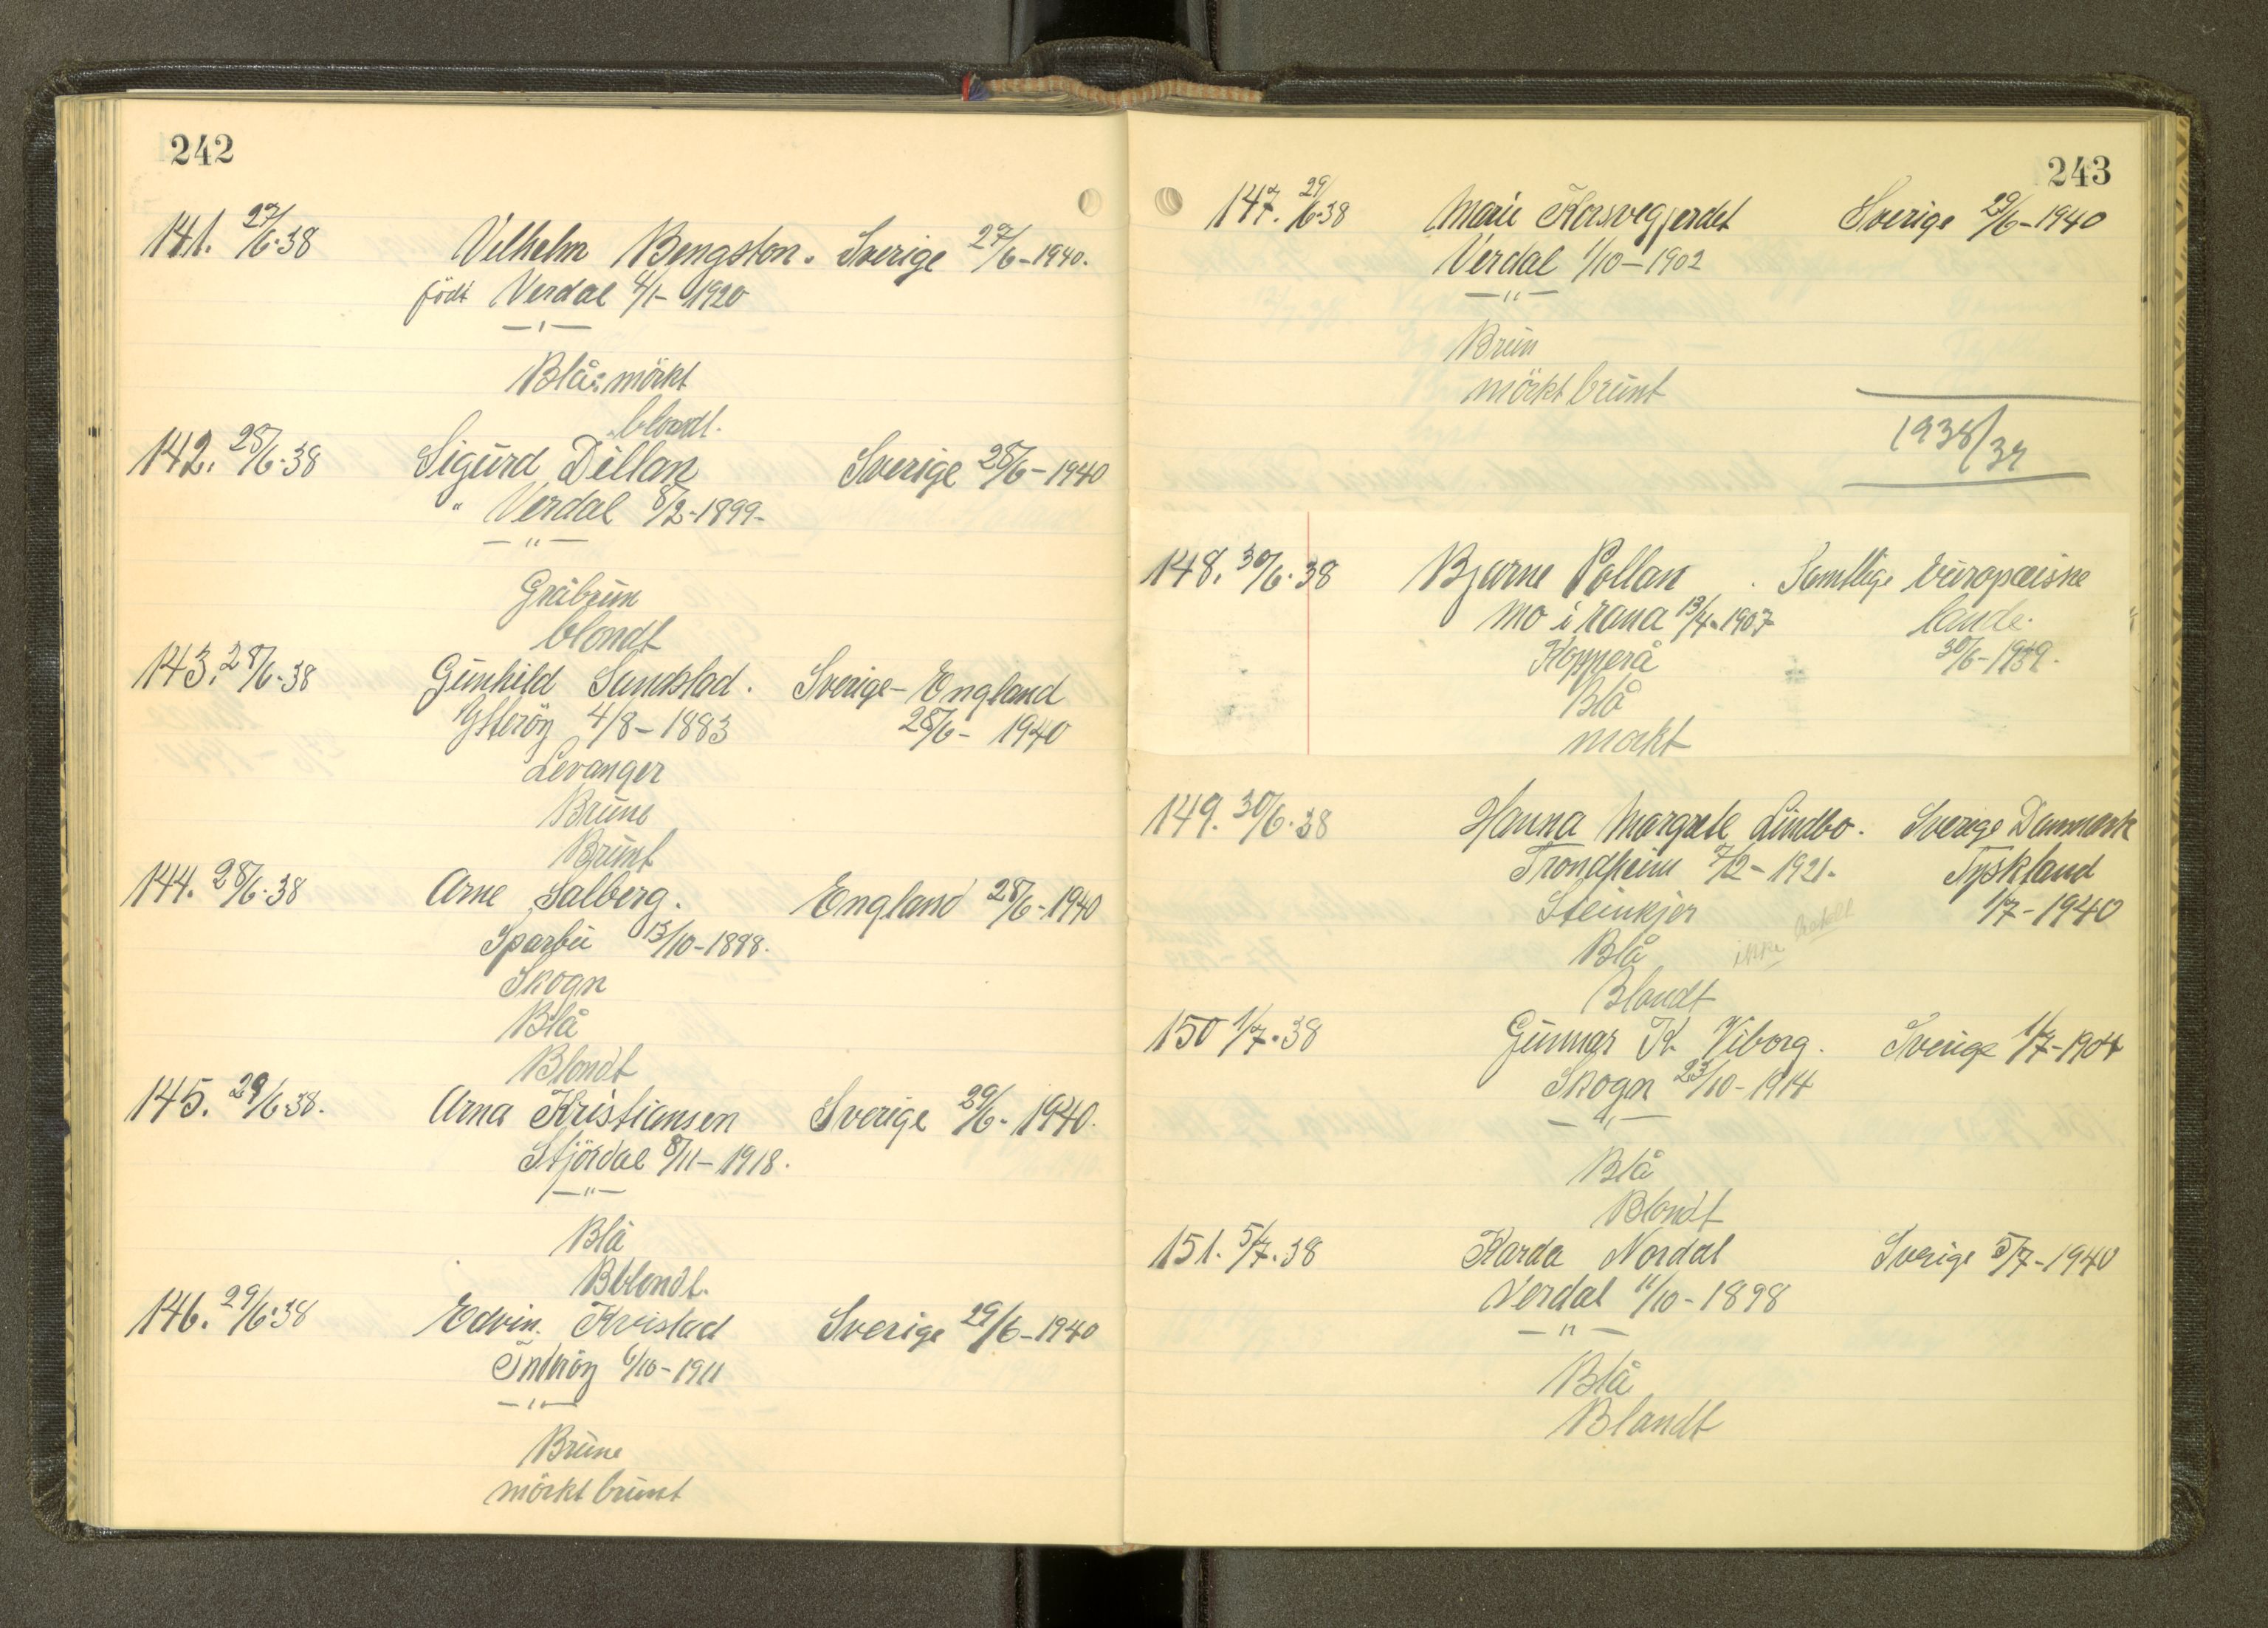 242
141. 27/6.38 Vilhelm Bengston. Sverige 27/6-1940.
födt Verdal 4/1-1920
—"—
Blå: mörkt
blondt.
142. 28/6.38 Sigurd Dillan Sverige 28/6-1940
" Verdal 8/2-1899-
—"—
Gråbrun
blondt
143. 28/6-38 Gunhild Sundstad. Sverige-England
Ytterøy 4/8-1883 28/6- 1940
Levanger
Brune
Brunt
144. 28/6.38 Arne Salberg. England 28/6-1940
Sparbu 13/10-1898.
Skogn
Blå
Blondt
145. 29/6 38. Arna Kristiansen Sverige 29/6- 1940.
Stjördal 8/11-1918.
—"—
Blå
Bblondt.
146. 29/6.38 Edvin Kvistad Sverige 29/6-1940
Inderöy 6/10-1911
—"—
Brune
mörkt brunt
243
147. 29/6.38 Marie Korsveggjerdet Sverige 29/6-1940
Verdal 1/10-1902
—"—
Brun
mörkt brunt
1938/39
148. 30/6.38 Bjarne Pollan . Samtlige europæiske
Mo i rana 13/4-1907 lande.
Kopperå 30/6-1939.
Blå
mørkt
149. 30/6.38 Hanna Margrete Lindbo. Sverige Danmark
Trondheim 7/2-1921. Tyskland
Steinkjer 1/7-1940
Blå ikke betalt
Blondt
150 1/7.38 Gunnar K. Viborg. Sverige 1/7-1904
Skogn 23/10-1914
—"—
Blå
Blondt
151. 5/7.38 Karda Nordal Sverige 5/7-1940
Verdal 11/10-1898
—"—
Blå
Blandt